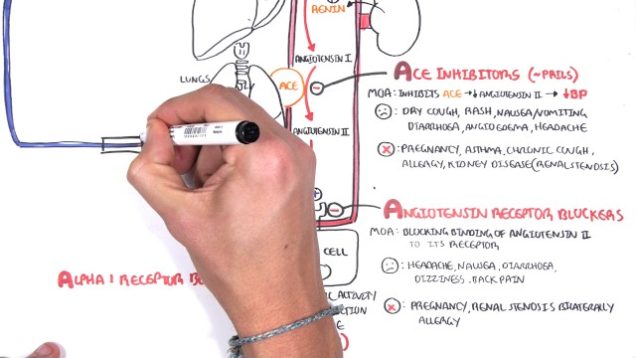 RENIN
ANGIOTENSIN I
LUNGS
ACE
ANGIOTENSIN II
CELL
ACTIVITY
ALPHA 1 RECEPTOR
ACE INHIBITORS (~PRILS)
MOA: INHIBITS ACE → ↓ANGIOTENSIN II → ↓BP
: DRY COUGH, RASH, NAUSEA/VOMITING
DIARRHOEA, ANGIOEDEMA, HEADACHE
: PREGNANCY, ASTHMA, CHRONIC COUGH,
ALLERGY, KIDNEY DISEASE (RENAL STENOSIS)
ANGIOTENSIN RECEPTOR BLOCKERS
MOA: BLOCKING BINDING OF ANGIOTENSIN II
TO ITS RECEPTOR
: HEADACHE, NAUSEA, DIARRHOEA,
DIZZINESS, BACK PAIN
: PREGNANCY, RENAL STENOSIS BILATERALLY
ALLERGY